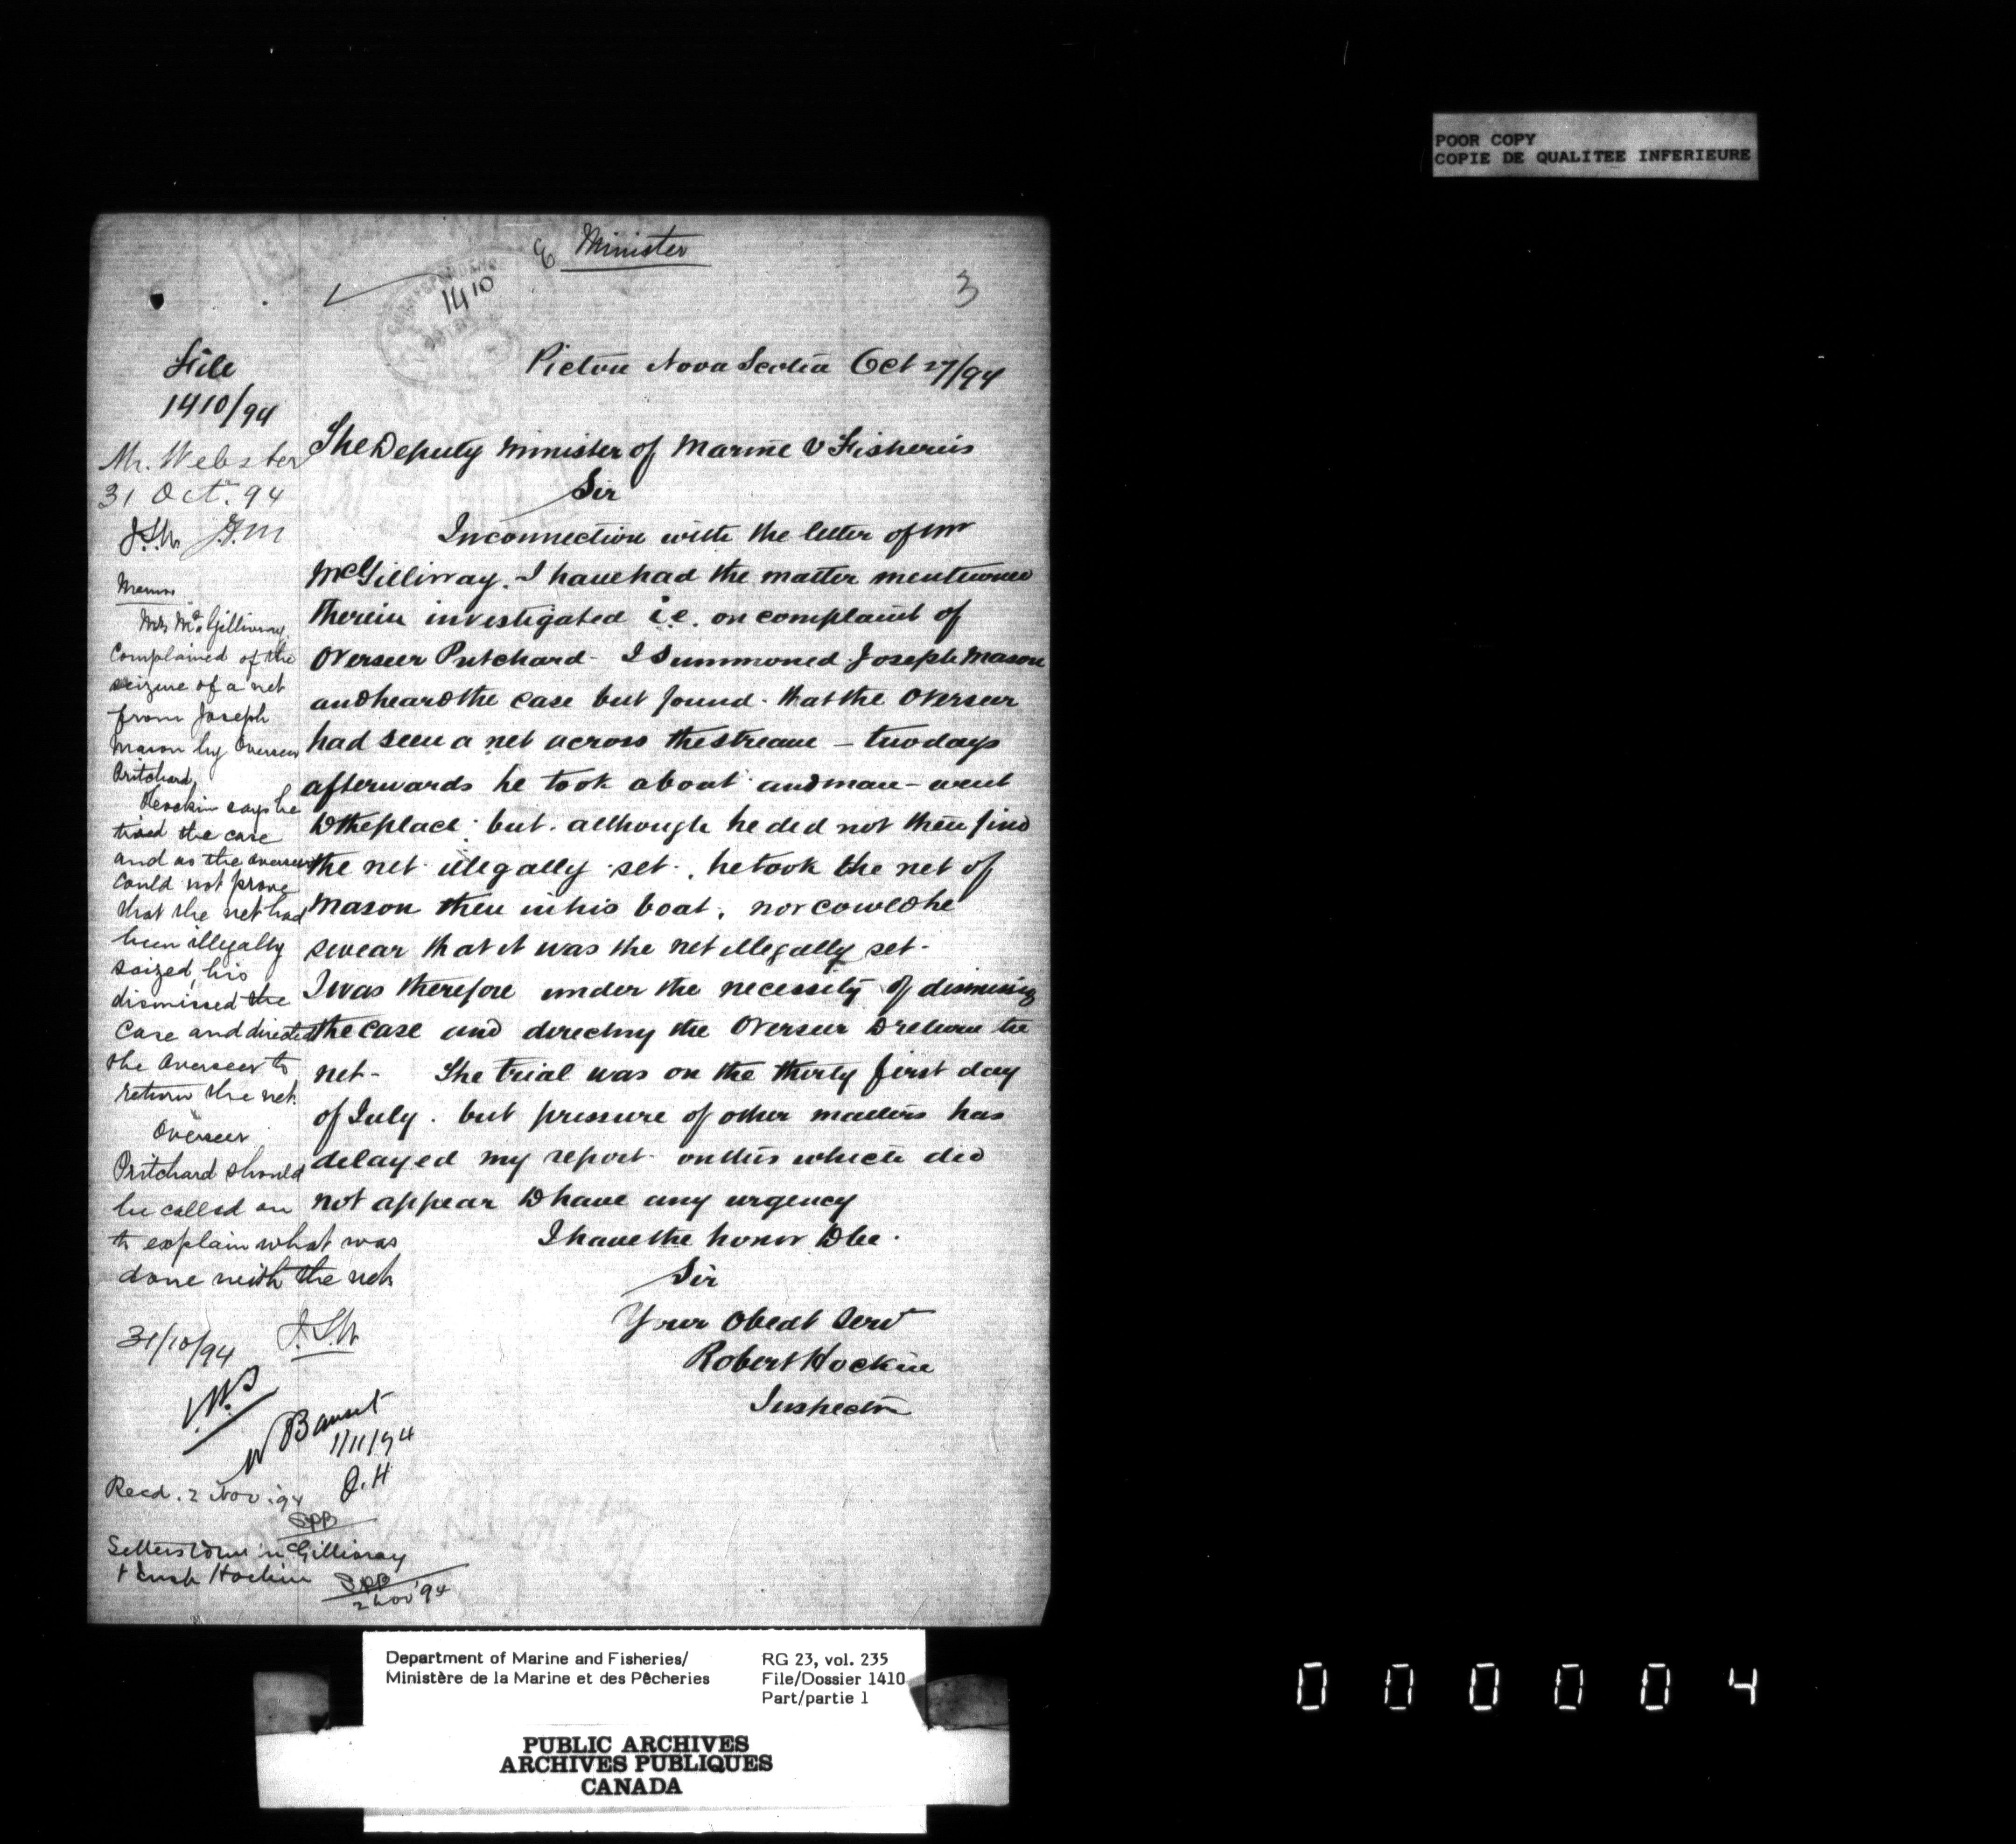 POOR COPY
COPIE DE QUALITEE INFERIEURE
Minister
1410
3
Pictou Nova Scotia Oct 27/94
The Deputy Minister of Marine & Fisheries
Sir
In connection with the letter of Mr
McGillivray. I have had the matter mentioned
therein investigated i.e. on complaint of
Overseer Pritchard - I summoned Joseph Mason
and heard the case but found that the Overseer
had seen a net across the stream - two days
afterwards he took a boat and man - went
to the place but although he did not then find
the net illegally set, he took the net of
Mason then in his boat, nor could he
swear that it was the net illegally set.
I was therefore under the necessity of dismissing
the case and directing the Overseer to return the
net - The trial was on the thirty first day
of July. but pressure of other matters has
delayed my report on this which did
not appear to have any urgency
I have the honor to be.
Sir
Your Obedt Servt
Robert Hockin
Inspector
File
1410/94
Mr. Webster
31 Oct. 94
J.S.W.
Memo
Mr McGillivray
complained of the
seizure of a net
from Joseph
Mason by Overseer
Pritchard.
Hockin says he
tried the case
and as the overseer
could not prove
that the net had
been illegally
seized, his
dismissed the
case and directed
the Overseer to
return the net.
Overseer
Pritchard should
be called on
to explain what was
done with the net.
31/10/94 J.S.W.
1/11/94
J.H
Recd. 2 Nov. 94
SPB
McGillivray
& Insp Hockin
SPB
2 Nov '94
Department of Marine and Fisheries/
Ministère de la Marine et des Pêcheries
RG 23, vol. 235
File/Dossier 1410
Part/partie 1
PUBLIC ARCHIVES
ARCHIVES PUBLIQUES
CANADA
000004